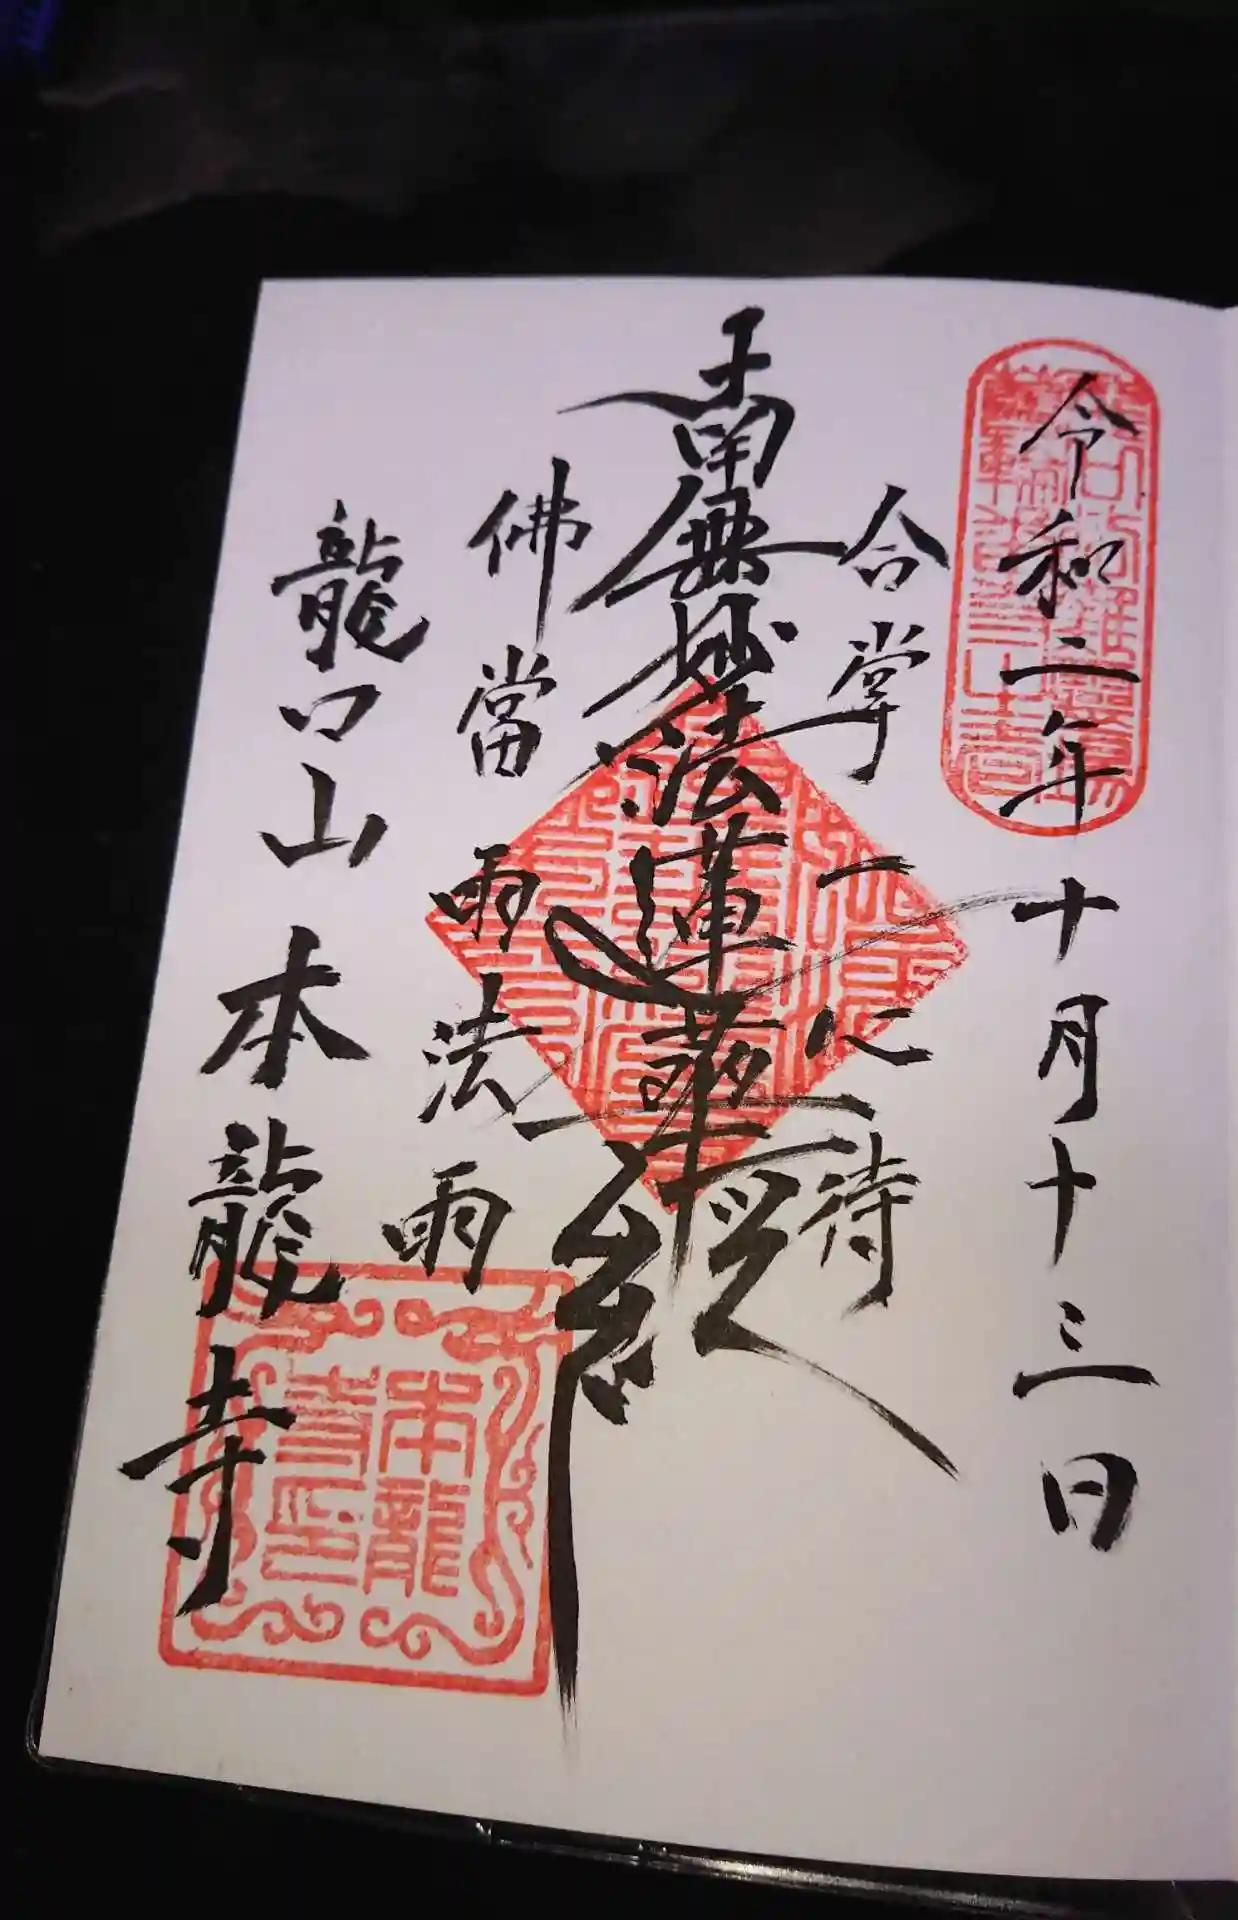 令和二年十月十三日
合掌一心待
南無妙法蓮華経
佛當雨法雨
龍口山本龍寺
本龍
寺印